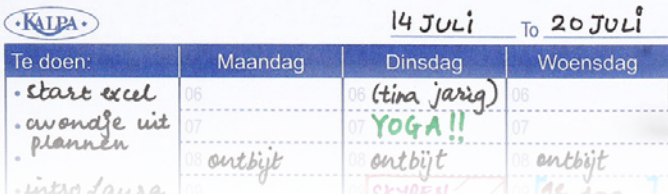 KALPA
14 JULi To 20 JULi
Te doen: Maandag Dinsdag Woensdag
• start excel 06 06 (tina jarig) 06
• avondje uit plannen 07 07 YOGA!! 07
• 08 ontbijt 08 ontbijt 08 ontbijt
• intro Laura